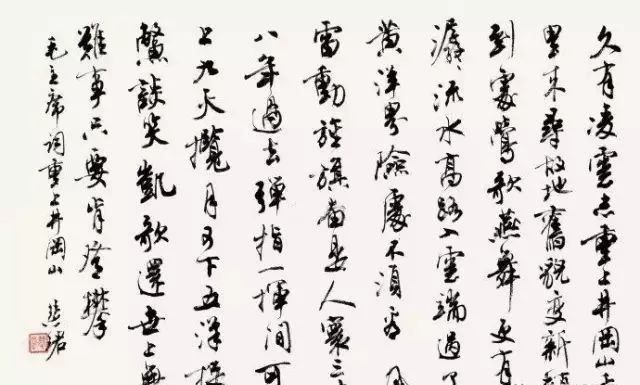 久有凌雲志重上井岡山
里来尋故地舊貌變新
到處鶯歌燕舞更有
潺潺流水高路入雲端過
黄洋界險處不須看
雷動旌旗奮是人寰三
八年過去彈指一揮間可
上九天攬月可下五洋捉
鱉談笑凱歌還世上無
難事只要肯登攀
毛主席词重上井岡山